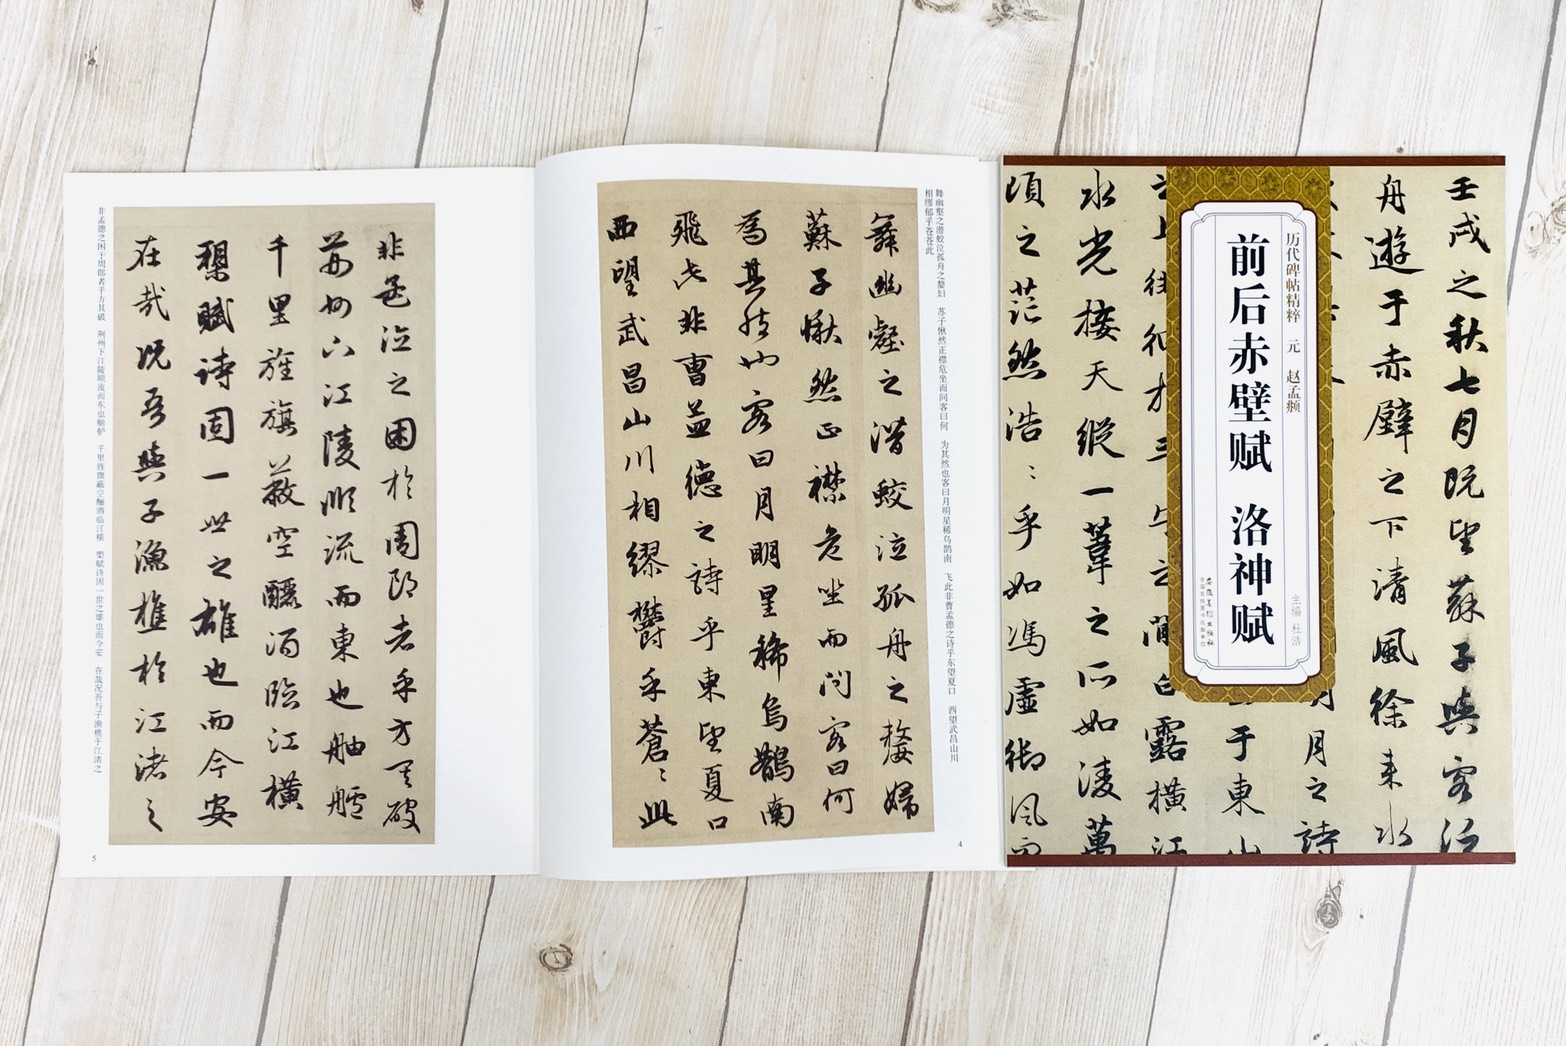 壬戌之秋七月既望蘇子與客泛
舟遊于赤壁之下清風徐来水
月之詩
于東山
露橫江
水光接天縱一葦之所如凌萬
頃之茫然浩〻乎如馮虛御風而
历代碑帖精粹 元 赵孟頫
前后赤壁赋 洛神赋
主编 杜浩
安徽美術出版社
全国百佳图书出版单位
舞幽壑之潜蛟泣孤舟之嫠妇 苏子愀然正襟危坐而问客曰何 为其然也客曰月明星稀乌鹊南 飞此非曹孟德之诗乎东望夏口 西望武昌山川
相缪郁乎苍苍此
舞幽壑之潛蛟泣孤舟之嫠婦
蘇子愀然正襟危坐而问客曰何
為其然也客曰月明星稀烏鵲南
飛此非曹孟德之詩乎東望夏口
西望武昌山川相繆欝乎蒼〻此
4
非孟德之困於周郎者乎方其破
荊州下江陵順流而東也舳艫
千里旌旗蔽空釃酒臨江橫
槊賦詩固一世之雄也而今安
在哉况吾與子漁樵於江渚之
非孟德之困于周郎者乎方其破 荆州下江陵顺流而东也舳舻 千里旌旗蔽空酾酒临江横 槊赋诗固一世之雄也而今安 在哉况吾与子渔樵于江渚之
5